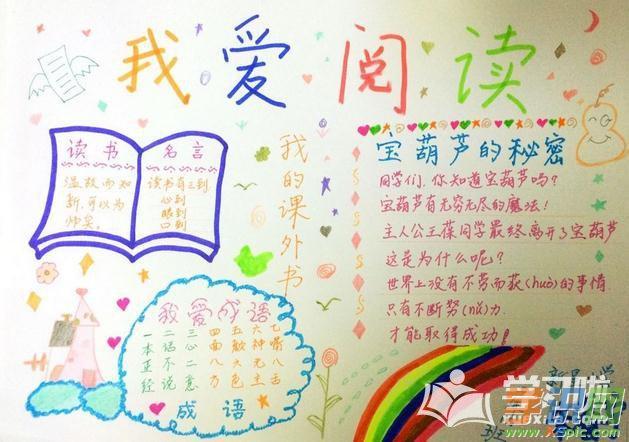 我爱阅读
读书
温故而知
新,可以为
师矣。
名言
读书有三到
心到
眼到
口到
我的课外书
宝葫芦的秘密
同学们,你知道宝葫芦吗?
宝葫芦有无穷无尽的魔法!
主人公王葆同学最终离开了宝葫芦
这是为什么呢?
世界上没有不劳而获(huò)的事情
只有不断努(nǔ)力
才能取得成功!
我爱成语
一 二 三 四 五 六 七
本 话 心 面 颜 神 嘴
正 不 二 八 六 无 八
经 说 意 方 色 主 舌
成语